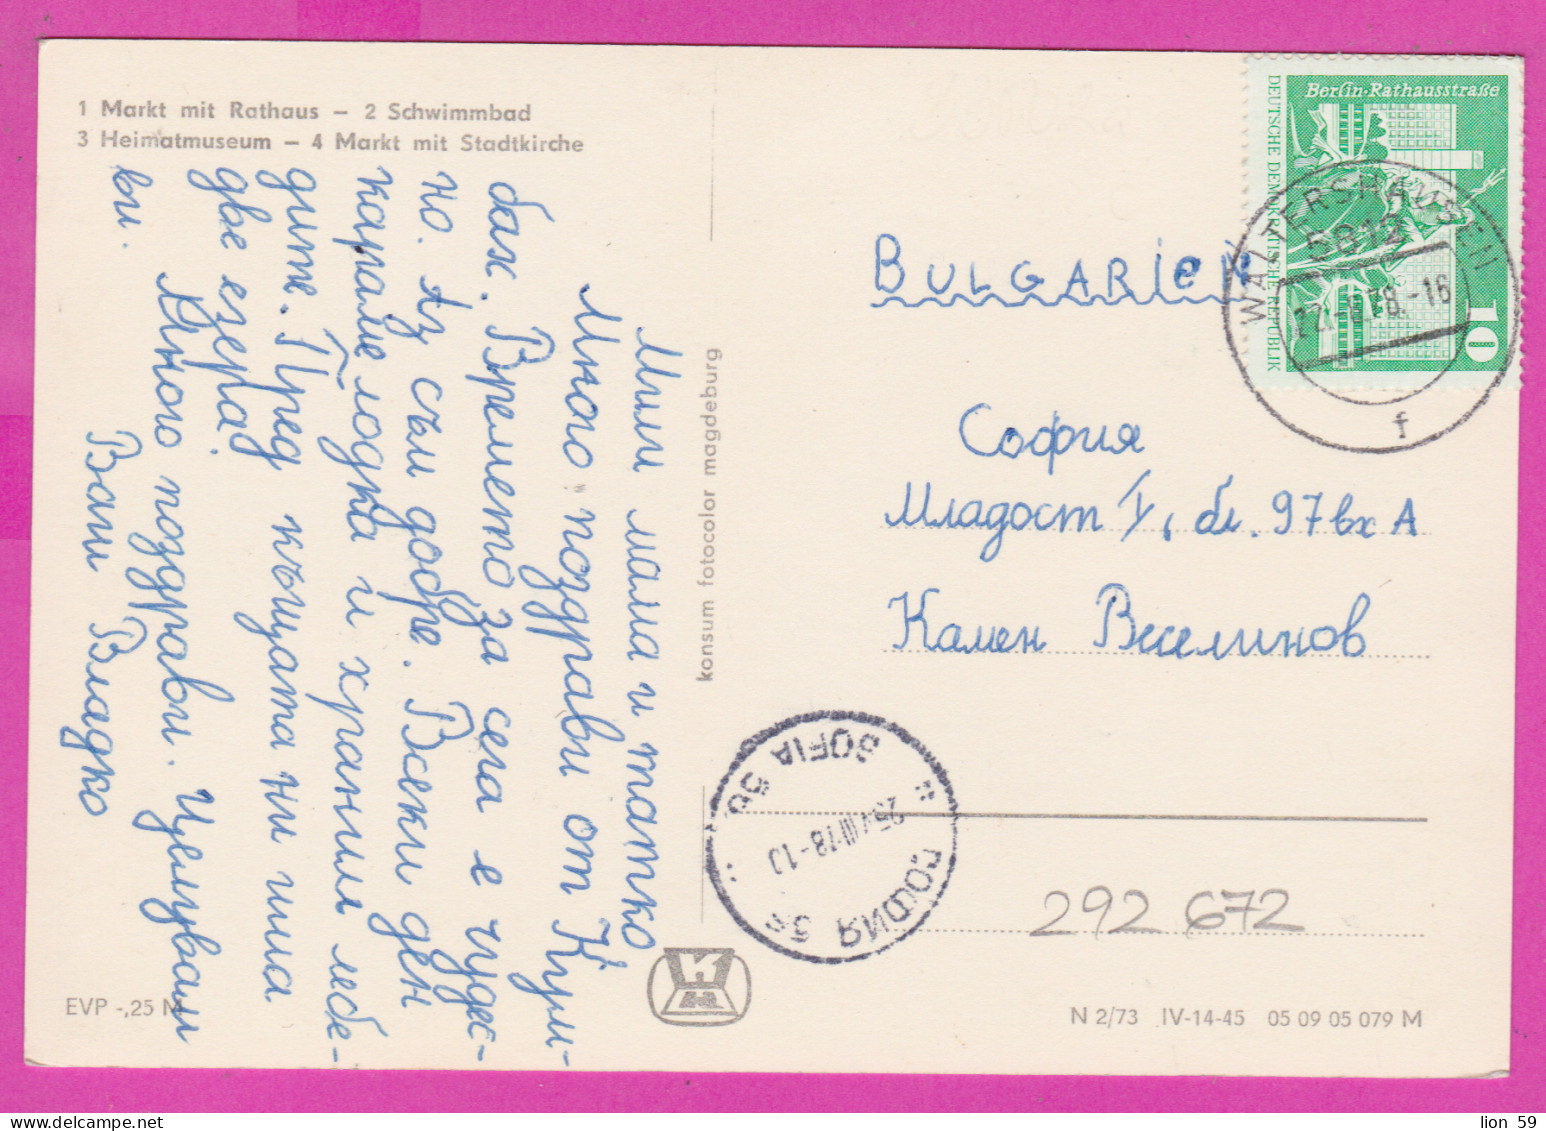 1 Markt mit Rathaus – 2 Schwimmbad
3 Heimatmuseum – 4 Markt mit Stadtkirche
Мили мама и татко
Много поздрави от Кум-
бах. Времето за сега е чудес-
но. Аз съм добре. Всеки ден
караме лодка и храним лебе-
дите. Пред къщата ни има
две езера!
Много поздрави. Целувам
ви.
Ваш Владко
EVP -,25 M
konsum fotocolor magdeburg
Berlin-Rathausstraße
DEUTSCHE DEMOKRATISCHE REPUBLIK
10
WALTERSHAUSEN
5812
78.-16
f
BULGARIEN
София
Младост I, бл. 97 вх А
Камен Веселинов
SOFIA 56
25.VIII.78-10
СОФИЯ 56
292 672
N 2/73 IV-14-45 05 09 05 079 M
lion 59